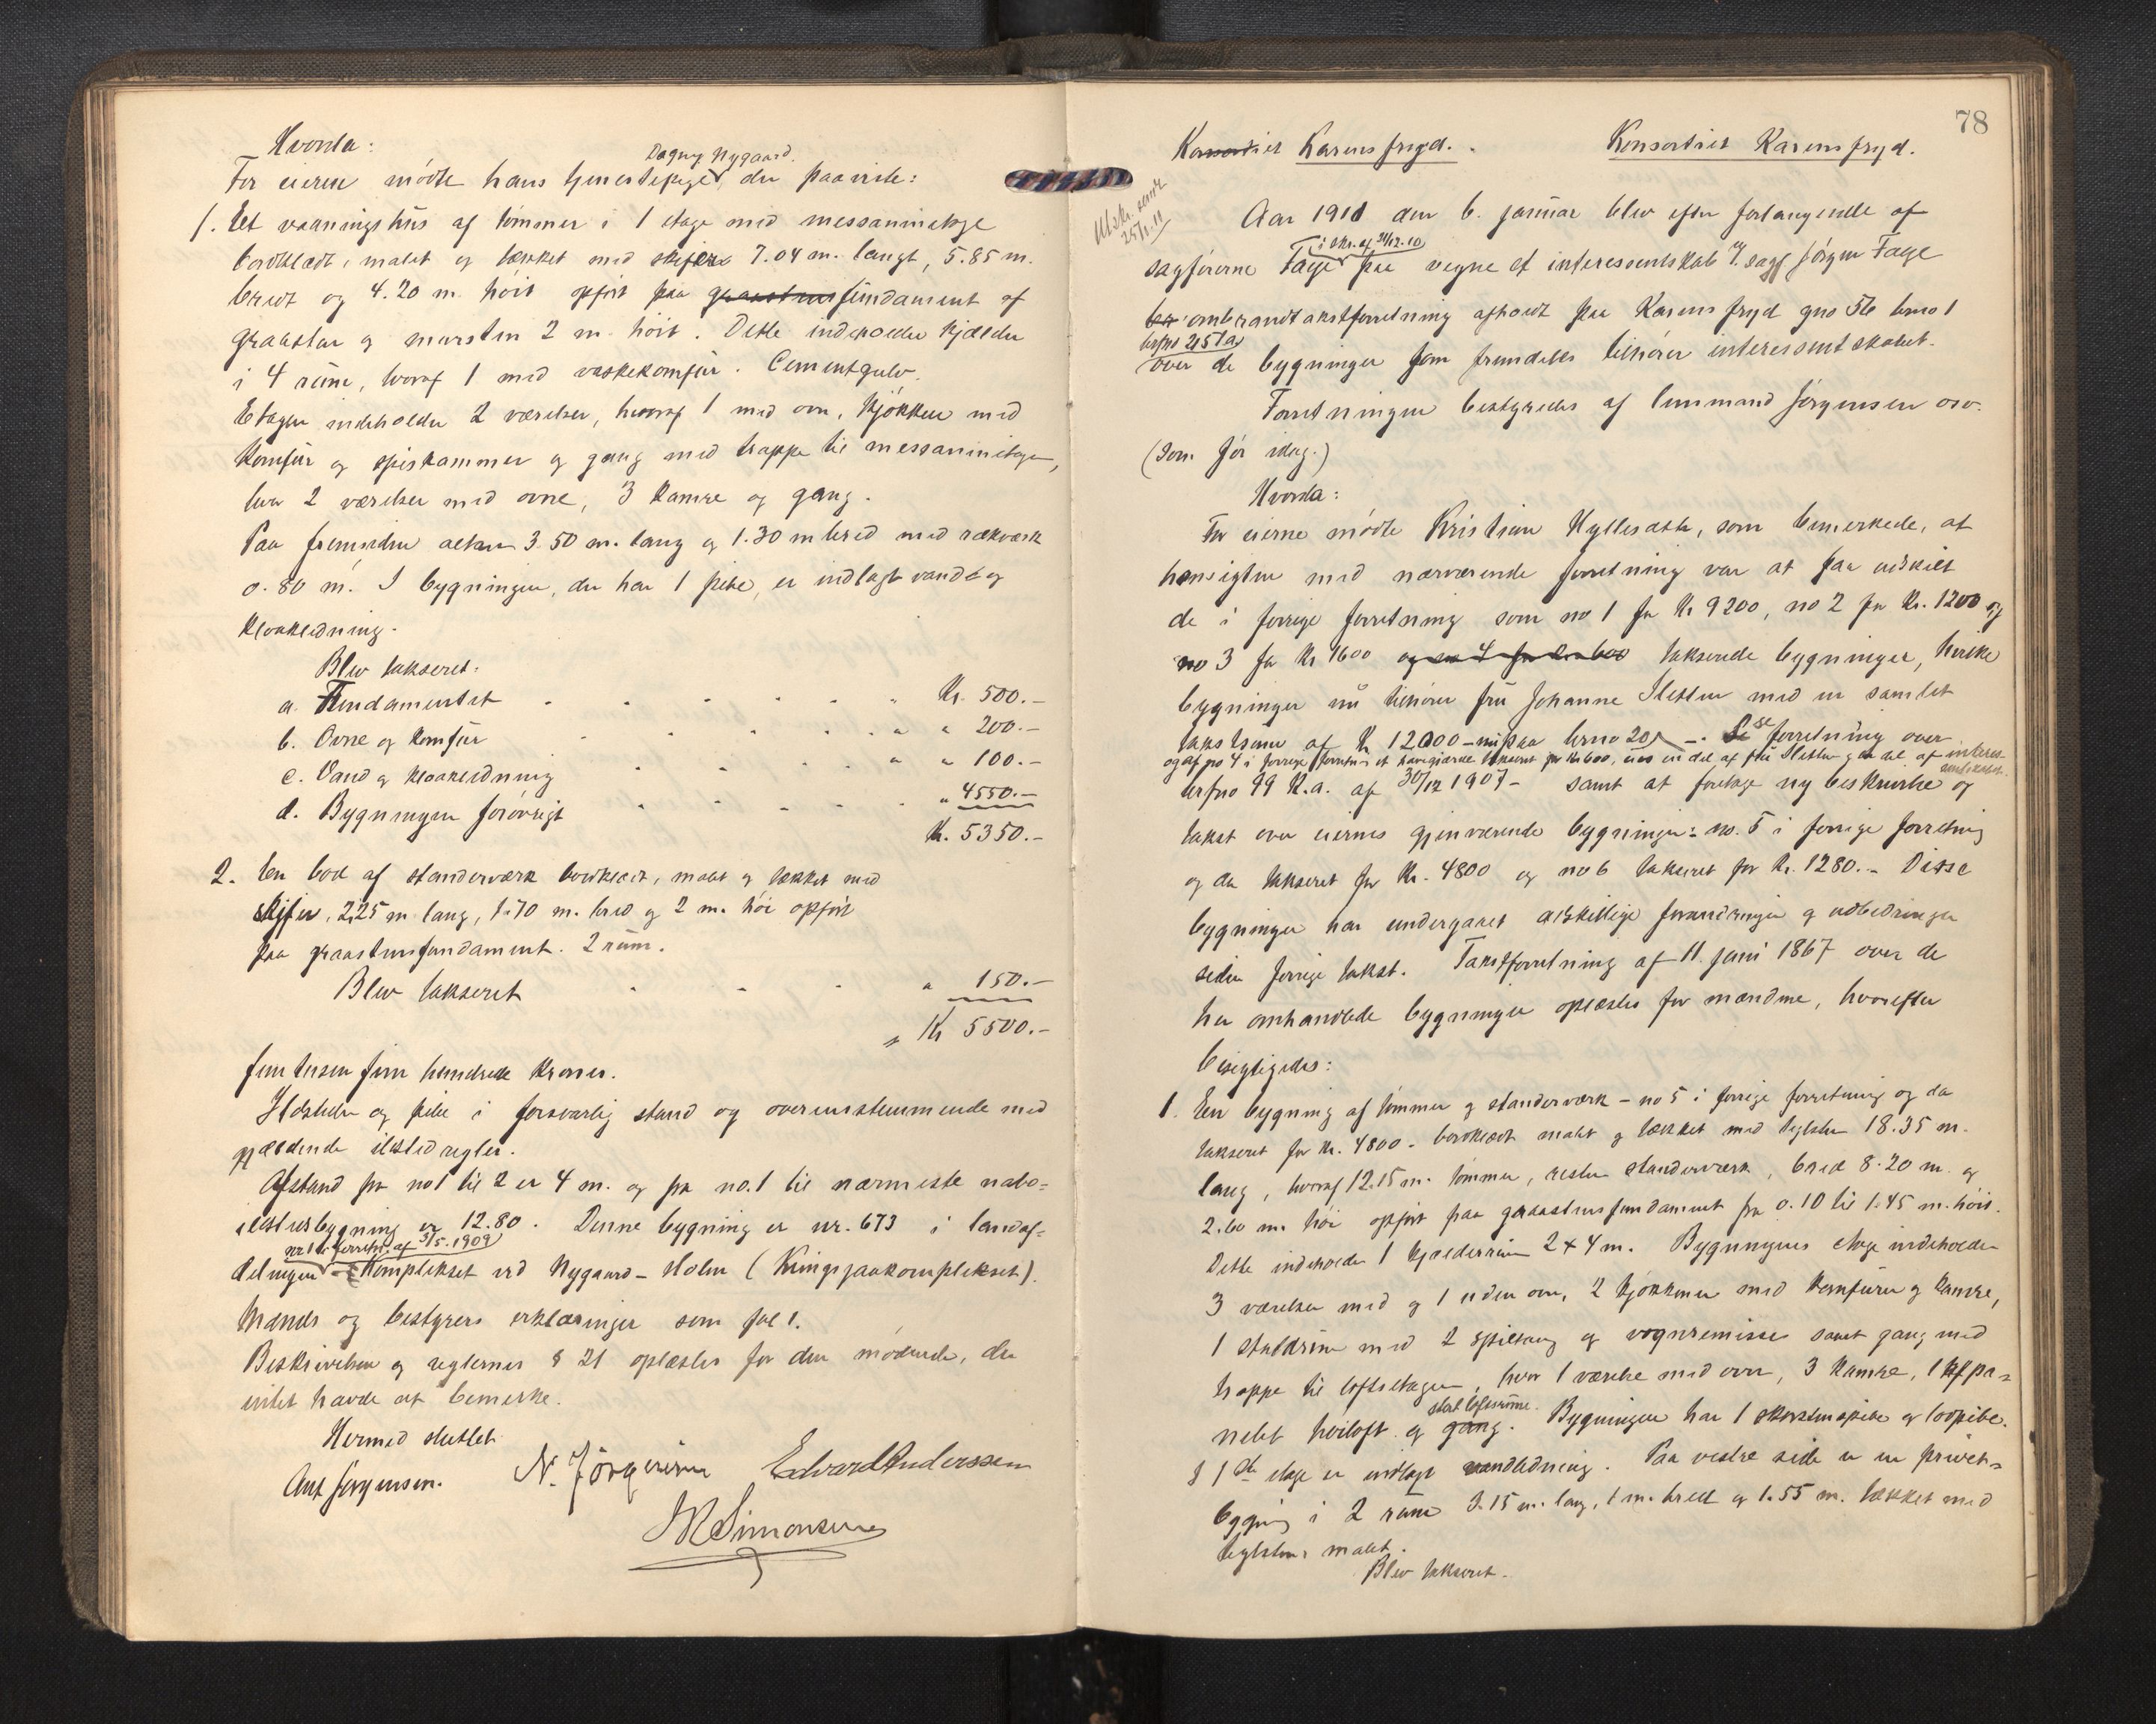 Hvorda:
Dagny Nygaard.
For eieren mødte hans tjenestepige, der paaviste:
1. Et vaaningshus af tømmer i 1 etage med messaninetage
bordklædt, malet og tækket med skifer 7.04 m. langt, 5.85 m.
bredt og 4.20 m. høit opført paa graastens fundament af
graasten og mursten 2 m. høit. Dette indeholder kjælder
i 4 rum, hvoraf 1 med vaskekomfur. Cementgulv.
Etagen indeholder 2 værelser, hvoraf 1 med ovn, kjøkken med
komfur og spiskammer og gang med trappe til messaninetagen,
hvor 2 værelser med ovne, 3 kamre og gang.
Paa fremsiden altan 3.50 m. lang og 1.30 m bred med rækværk
0.80 m. I bygningen, der har 1 pibe, er indlagt vand og
kloakledning.
Blev takseret:
a. Fundamentet Kr. 500.-
b. Ovne og komfur " 200.-
c. Vand og kloakledning " 100.-
d. Bygningen forøvrigt " 4550.-
Kr. 5350.-
2. En bod af standerværk bordklædt, malet og tækket med
skifer, 2.25 m lang, 1.70 m. bred og 2 m. høi opført
paa graastensfundament. 2 rum.
Blev takseret " 150.-
Kr 5500.-
fem tusen fem hundrede kroner.
Ildsteder og pibe i forsvarlig stand og overensstemmende med
gjældende ildstedregler.
Afstand fra no 1 til 2 er 4 m. og fra no. 1 til nærmeste nabo-
ildstedsbygning er 12.80. Denne bygning er nr. 673 i landaf-
nr 1 i forretn. af 3/5. 1909
delingen - Komplekset ved Nygaard - Holm (Kringsjaakomplekset).
Mænds og bestyrers erklæringer som fol 1.
Beskrivelsen og reglernes § 21 oplæstes for den mødende, der
intet havde at bemerke.
Hermed sluttet
Ant Jørgensen. N. Jörgensen Edvard Anderssen
M Simonsen
78
Konsortiet Karensfryd. Konsortiet Karensfryd.
Utskr. sendt
25/1.11
Aar 1911 den 6. januar blev efter forlangende af
i skr. af 31/12.10
sagførerne Fage paa vegne et interessentskab v. sagf Jörgen Fage
ombrandtakstforretning afholdt paa Karensfryd gno 56 brno 1
brfno 2157a
over de bygninger som fremdeles tilhører interessentskabet.
Forretningen bestyredes af lensmand Jørgensen osv.
(som før idag.)
Hvorda:
For eierne mødte Kristian Kyllesæth, som bemerkede, at
hensigten med nærværende forretning var at faa utskilt
de i forrige forretning som no 1 for Kr 9200, no 2 for Kr. 1200 og
no 3 for Kr 1600 og no 4 for Kr. 600 takserede bygninger, hvilke
bygninger nu tilhører fru Johanne Sletten med en samlet
takstsum af Kr 12000 - nu paa brno 20 -. Se forretning over
og af no 4 i forrige forretn. et havegjærde takseret for Kr 600, eies en del af fru Sletten og en del af interes-
sentskabet.
brfno 99 K.a. af 30/12 1907 - samt at foretage ny beskrivelse og
takst over eiernes gjenværende bygninger: no. 5 i forrige forretning
og da takseret for Kr. 4800 og no 6 takseret for Kr. 1280.- Disse
bygninger har undergaaet adskillige forandringer og udbedringer
siden forrige takst. Takstforretning af 11. juni 1867 over de
her omhandlede bygninger oplæstes for mændene, hvorefter
besigtigedes:
1. En bygning af tømmer og standerværk - no 5 i forrige forretning og da
takseret for Kr. 4800 - bordklædt malet og tækket med teglsten 18.35 m.
lang, hvoraf 12.15 m. tømmer, resten standerværk, bred 8.20 m. og
2.60 m. høi opført paa graastensfundament fra 0.10 til 1.45 m. høit.
Dette indeholder 1 kjælderrum 2 x 4 m. Bygningens etage indeholder
3 værelser med og 1 uden ovn, 2 kjøkkener med komfurer og kamre,
1 staldrum med 2 spiltaug og vognremisse samt gang med
trappe til loftsetagen, hvor 1 værelse med ovn, 3 kamre, 1 af pa-
samt loftsrum.
nelet høiloft og gang. Bygningen har 1 skorstenspibe og 1 ovpibe.
I 1ste etage er indlagt vandledning. Paa vestre side er en privet-
bygning i 2 rum 3.15 m. lang, 1 m. bred og 1.55 m. tækket med
teglsten, malet.
Blev takseret.